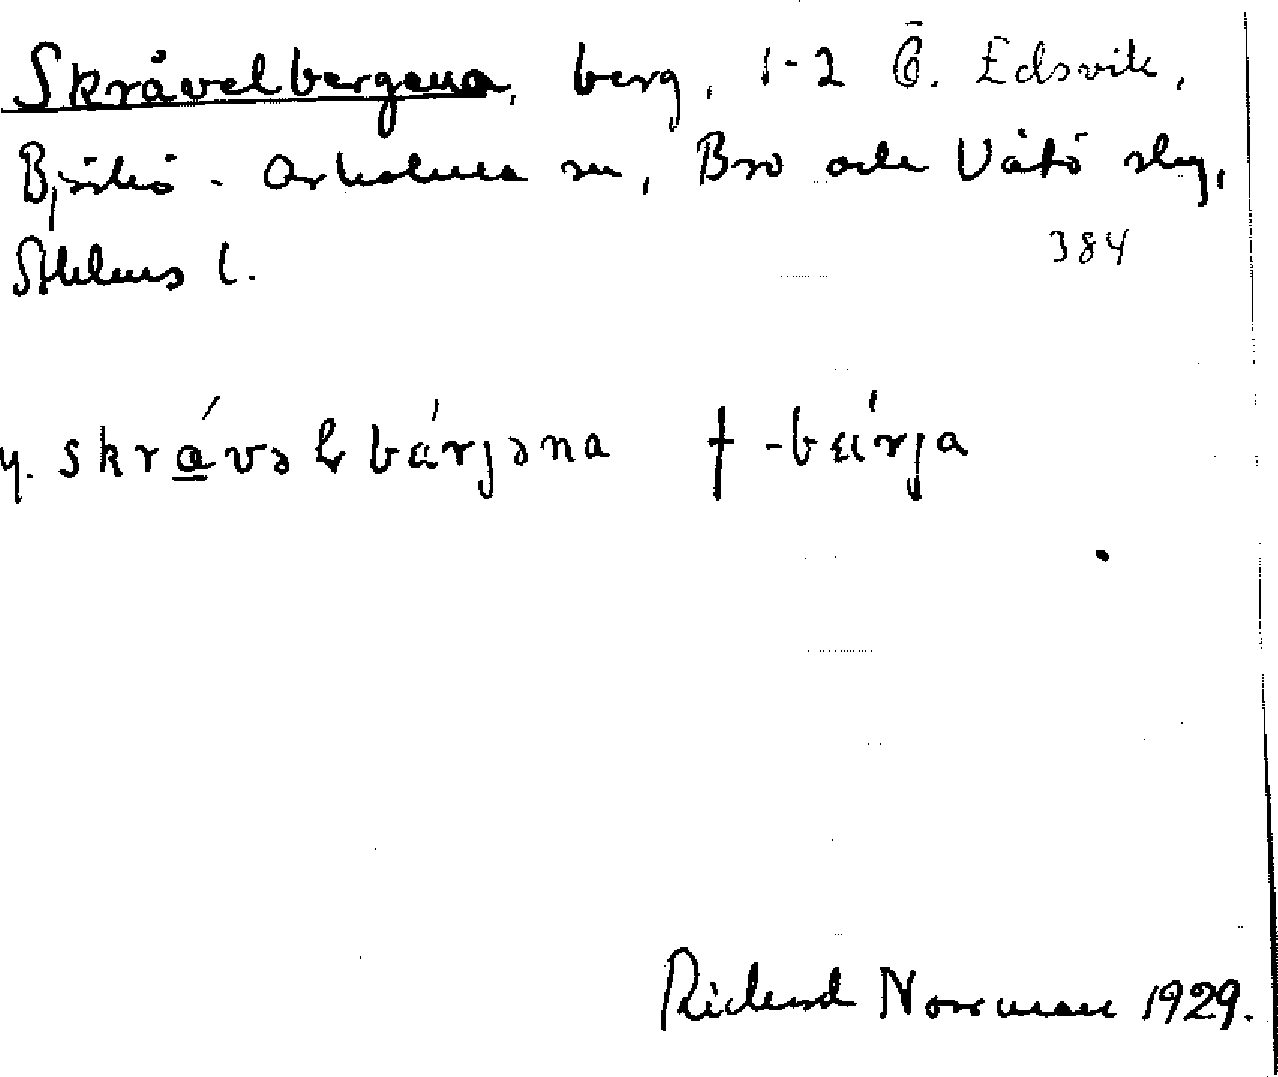 Skråvelbergena, berg, 1-2 Ö. Edsvik,
Björkö-Arholma sn, Bro och Vätö skg,
Sthlms l.
384
y. skrávəɫbárjəna † -bárja
Richard Norrman 1929.